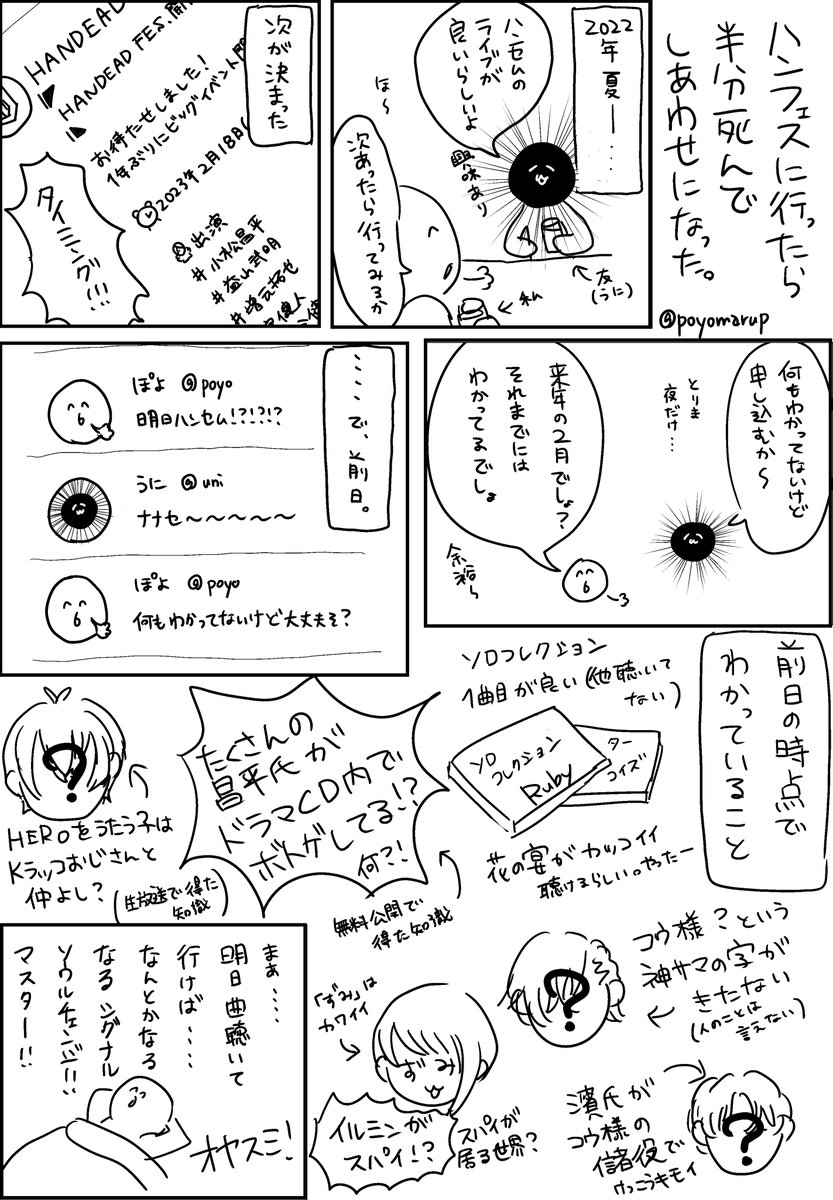 ハンフェスに行ったら
半分死んで
しあわせになった。
@poyomarup
2022
年 夏ー……
ハンセムの
ライブが
良いらしいよ
興味あり
ほ〜
次あったら
行ってみるか
友
(うに)
私
次が決まった
HANDEAD
HANDEAD FES.開
お待たせしました!
1年ぶりにビッグイベント開
2023年2月18日(
出演
#小松昌平
#益山武明
#増元拓也
タイミング!!!
何もわかってないけど
申し込むか〜
とりま
夜だけ…
来年の2月でしょ?
それまでには
わかってるでしょ
余裕ら
……で、前日。
ぽよ @poyo
明日ハンセム!?!?!?
うに @uni
ナナセ〜〜〜〜〜
ぽよ @poyo
何もわかってないけど大丈夫そ?
前日の時点で
わかっていること
ソロコレクション
1曲目が良い(他聴いて
ない)
ソロ
コレクション
Ruby
ター
コイズ
花の宴がカッコイイ
聴けるらしい。やったー
たくさんの
昌平氏が
ドラマCD内で
ボドゲしてる!?
何?!
無料公開で
得た知識
HEROをうたう子は
Kラッコおじさんと
仲よし?
(生放送で得た
知識)
コウ様?という
神サマの字が
きたない
(人のことは
言えない)
「ずみ」は
カワイイ
ずみ
イルミンが
スパイ!?
スパイが
居る世界?
濱氏が
コウ様の
信者役で
けっこうキモイ
まぁ….
明日曲聴いて
行けば……
なんとかなる
なるシグナル
ソウルチェンジ!!
マスター!!
オヤスミ!